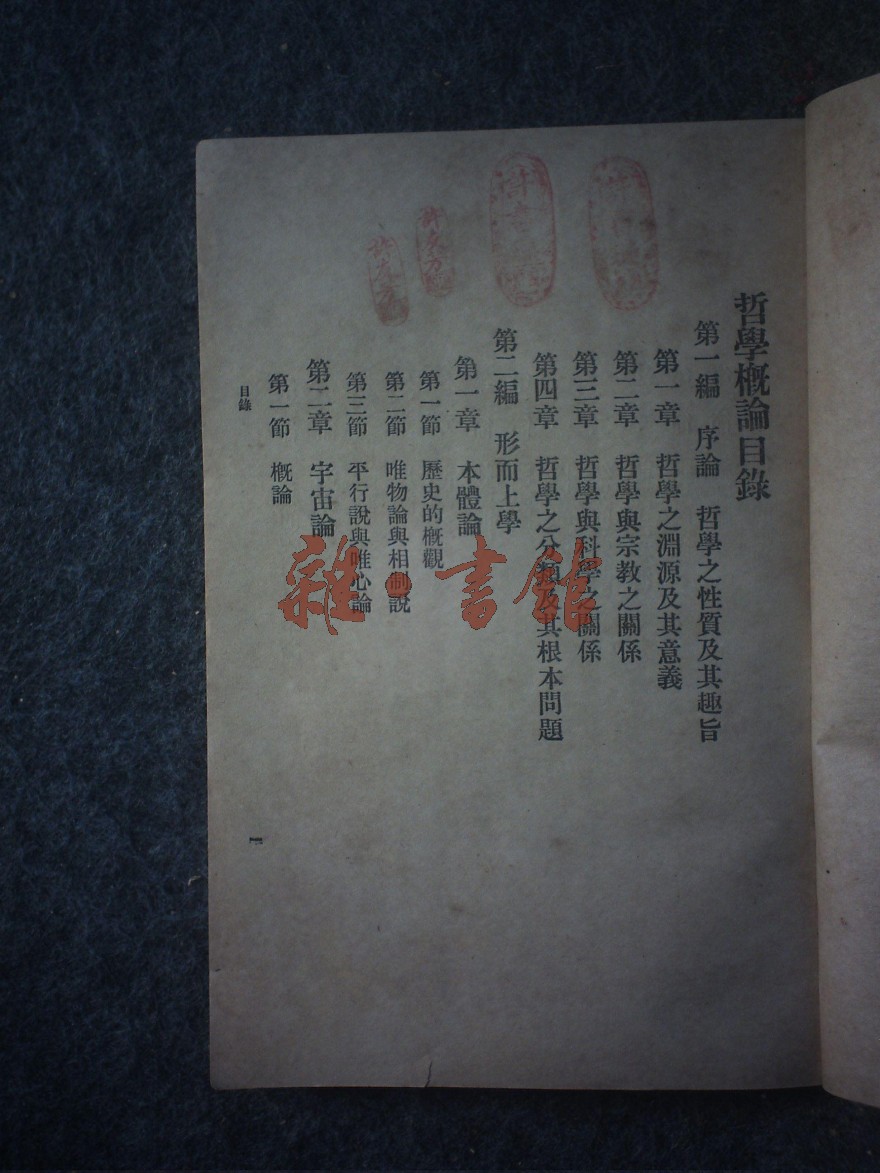 哲學概論目錄
第一編　序論　哲學之性質及其趣旨
第一章　哲學之淵源及其意義
第二章　哲學與宗教之關係
第三章　哲學與科學之關係
第四章　哲學之分類及其根本問題
第二編　形而上學
第一章　本體論
第一節　歷史的概觀
第二節　唯物論與相制說
第三節　平行說與唯心論
第二章　宇宙論
第一節　概論
目錄
一
雜·書館